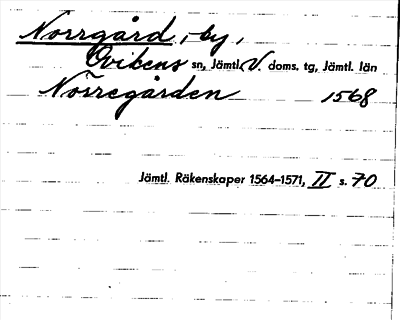 Norrgård, -by,
Ovikens sn, Jämtl. V. doms. tg, Jämtl. län
Norregården 1568
Jämtl. Räkenskaper 1564–1571, II s. 70